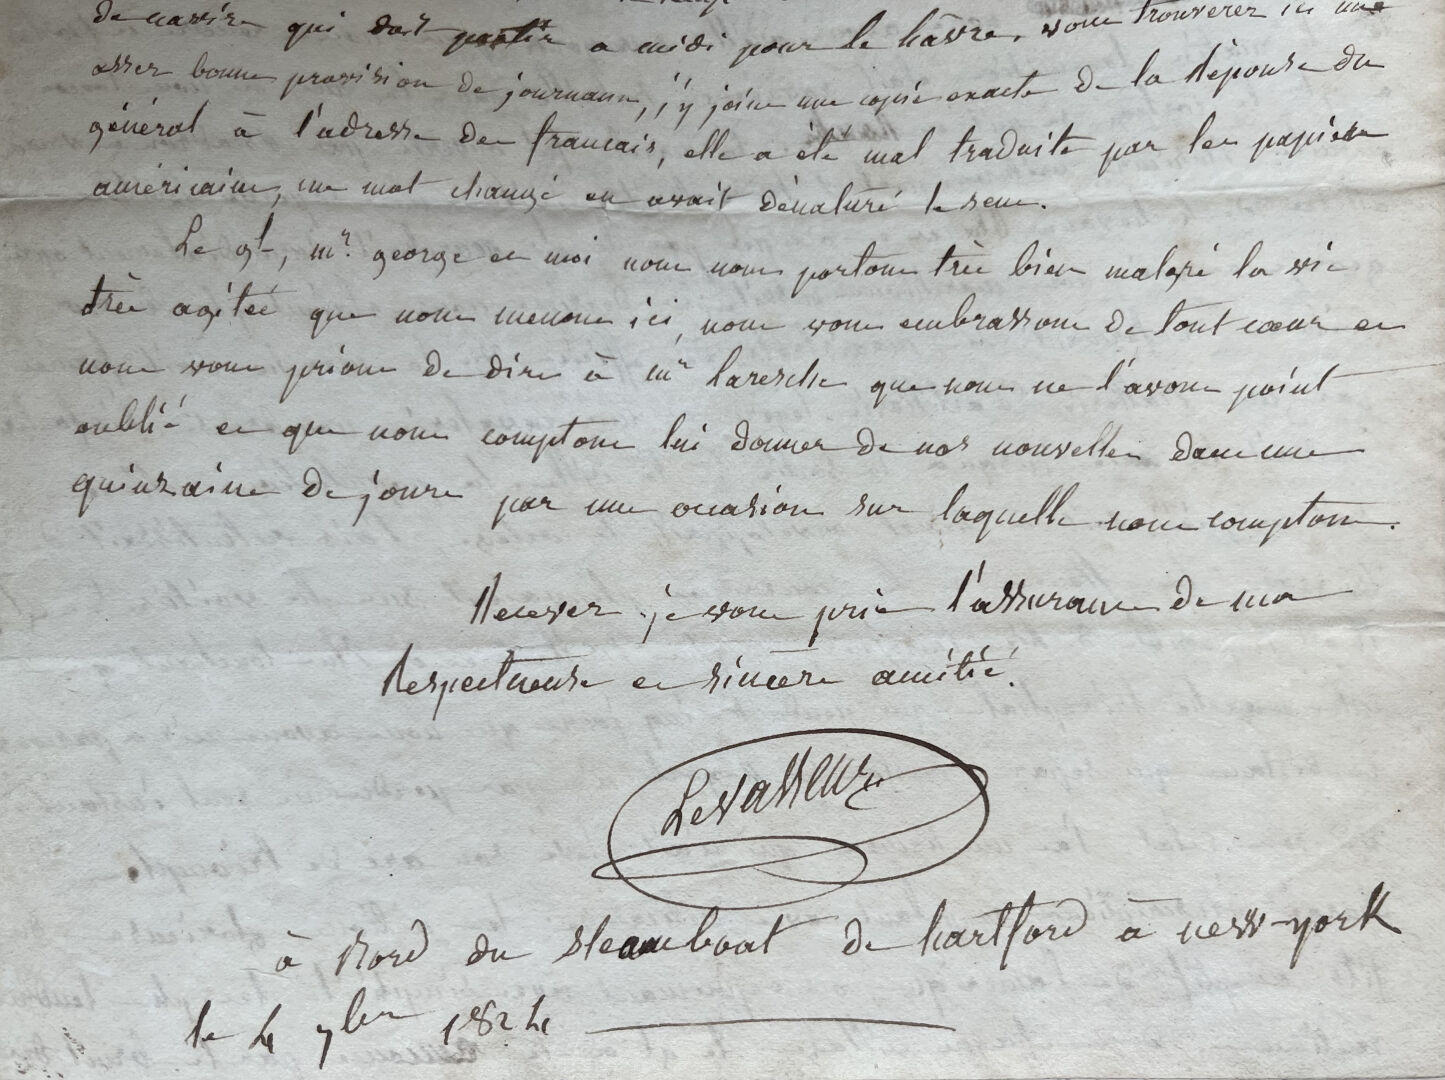 de navire qui doit partir a midi pour le hâvre. vous trouverez ici une
assez bonne provision de journaux, j'y joins une copie exacte de la réponse du
général à l'adresse des francais, elle a été mal traduite par les papiers
américains, un mot changé en avait dénaturé le sens.
Le gl, mr george et moi nous nous portons très bien malgré la vie
très agitée que nous menons ici, nous vous embrassons de tout cœur et
nous vous prions de dire à mr laresche que nous ne l'avons point
oublié et que nous comptons lui donner de nos nouvelles dans une
quinzaine de jours par une occasion sur laquelle nous comptons.
Recevez je vous prie l'assurance de ma
Respectueuse et sincère amitié.
Levasseur
à Bord du steamboat de hartford à new-york
le 4 7bre 1824